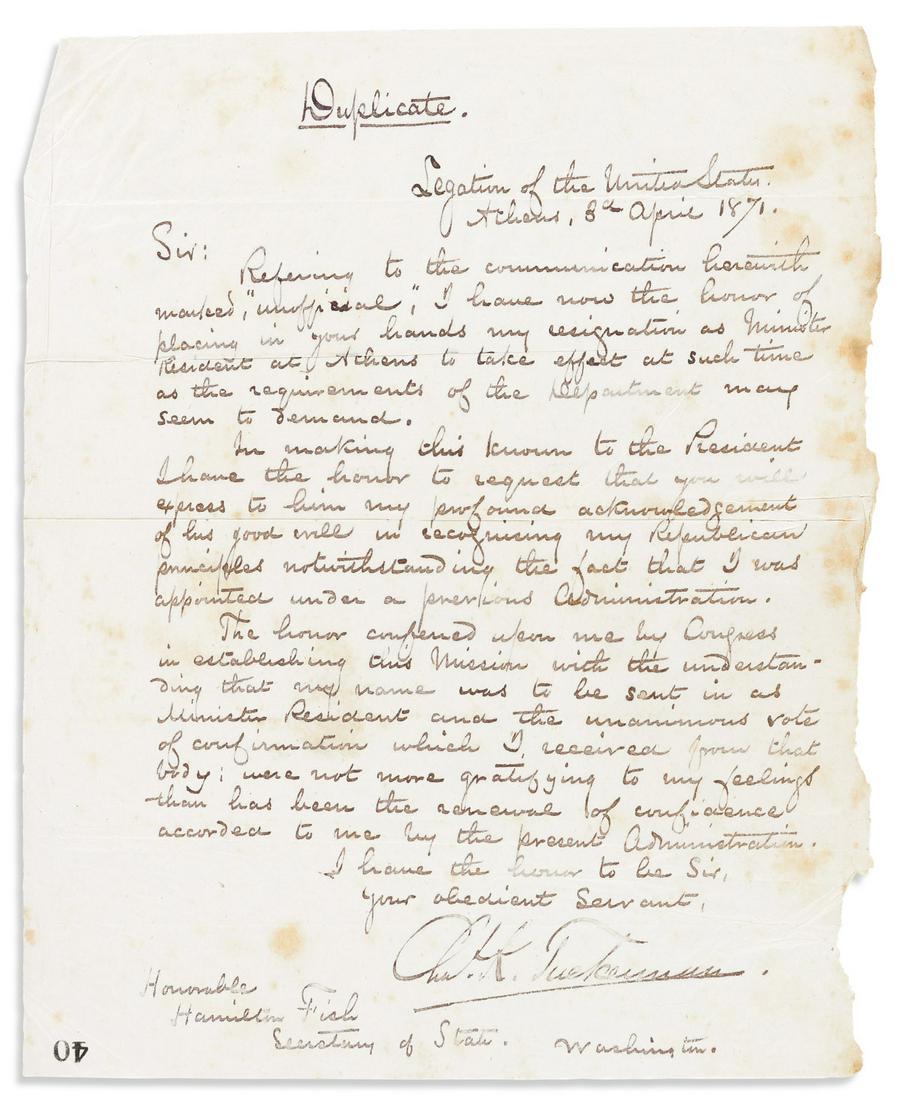 Duplicate.
Legation of the United States.
Athens, 3d April 1871.
Sir:
Refering to the communication herewith
marked, "unofficial", I have now the honor of
placing in your hands my resignation as Minister
Resident at Athens to take effect at such time
as the requirements of the Department may
seem to demand.
In making this known to the President
I have the honor to request that you will
express to him my profound acknowledgement
of his good will in recognising my Republican
principles notwithstanding the fact that I was
appointed under a previous Administration.
The honor conferred upon me by Congress
in establishing this Mission with the understan-
ding that my name was to be sent in as
Minister Resident and the unanimous vote
of confirmation which I received from that
body; were not more gratifying to my feelings
than has been the renewal of confidence
accorded to me by the present Administration.
I have the honor to be Sir,
Your obedient Servant,
Chas. K. Tuckerman.
Honorable
Hamilton Fish
Secretary of State.    Washington.
40